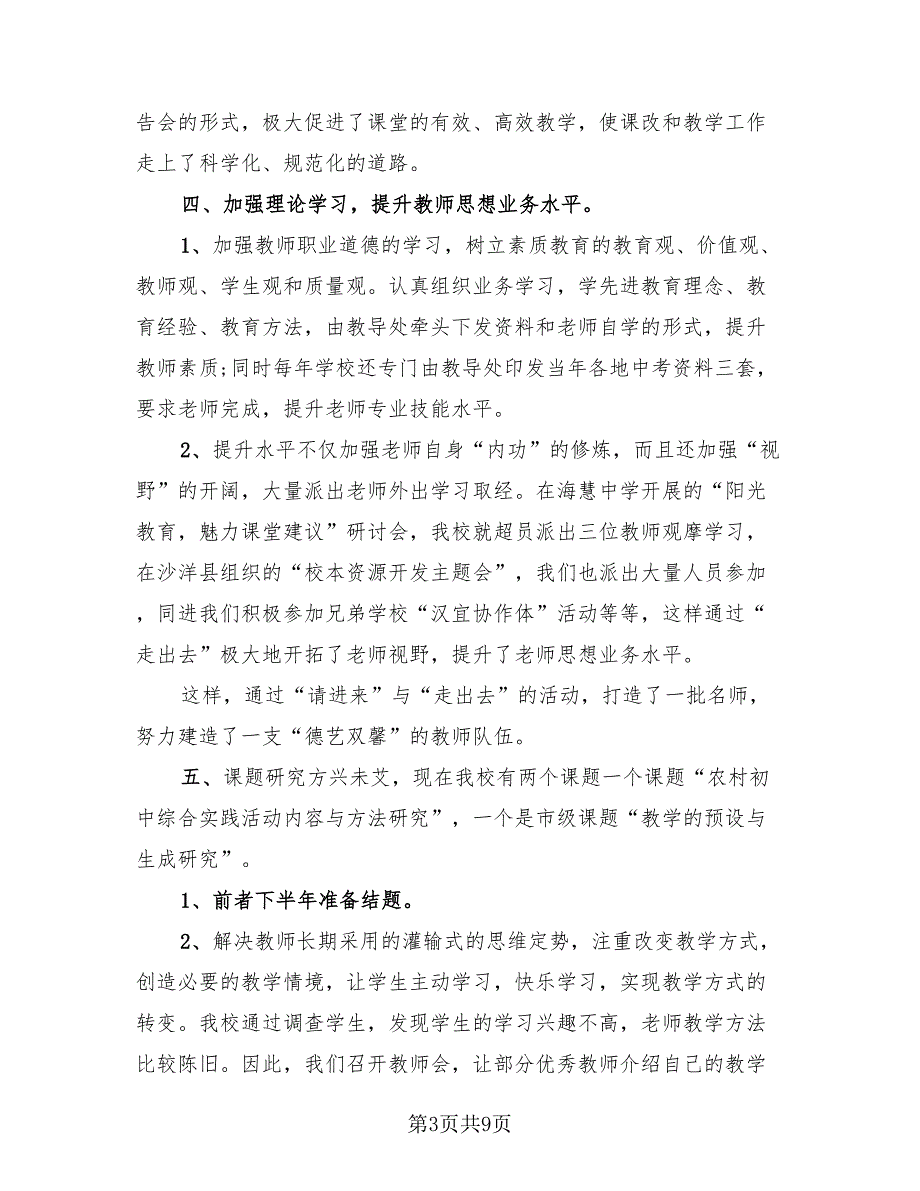 告会的形式，极大促进了课堂的有效、高效教学，使课改和教学工作
走上了科学化、规范化的道路。
四、加强理论学习，提升教师思想业务水平。
1、加强教师职业道德的学习，树立素质教育的教育观、价值观、
教师观、学生观和质量观。认真组织业务学习，学先进教育理念、教
育经验、教育方法，由教导处牵头下发资料和老师自学的形式，提升
教师素质;同时每年学校还专门由教导处印发当年各地中考资料三套，
要求老师完成，提升老师专业技能水平。
2、提升水平不仅加强老师自身“内功”的修炼，而且还加强“视
野”的开阔，大量派出老师外出学习取经。在海慧中学开展的“阳光
教育，魅力课堂建议”研讨会，我校就超员派出三位教师观摩学习，
在沙洋县组织的“校本资源开发主题会”，我们也派出大量人员参加
，同进我们积极参加兄弟学校“汉宜协作体”活动等等，这样通过“
走出去”极大地开拓了老师视野，提升了老师思想业务水平。
这样，通过“请进来”与“走出去”的活动，打造了一批名师，
努力建造了一支“德艺双馨”的教师队伍。
五、课题研究方兴未艾，现在我校有两个课题一个课题“农村初
中综合实践活动内容与方法研究”，一个是市级课题“教学的预设与
生成研究”。
1、前者下半年准备结题。
2、解决教师长期采用的灌输式的思维定势，注重改变教学方式，
创造必要的教学情境，让学生主动学习，快乐学习，实现教学方式的
转变。我校通过调查学生，发现学生的学习兴趣不高，老师教学方法
比较陈旧。因此，我们召开教师会，让部分优秀教师介绍自己的教学
第3页共9页